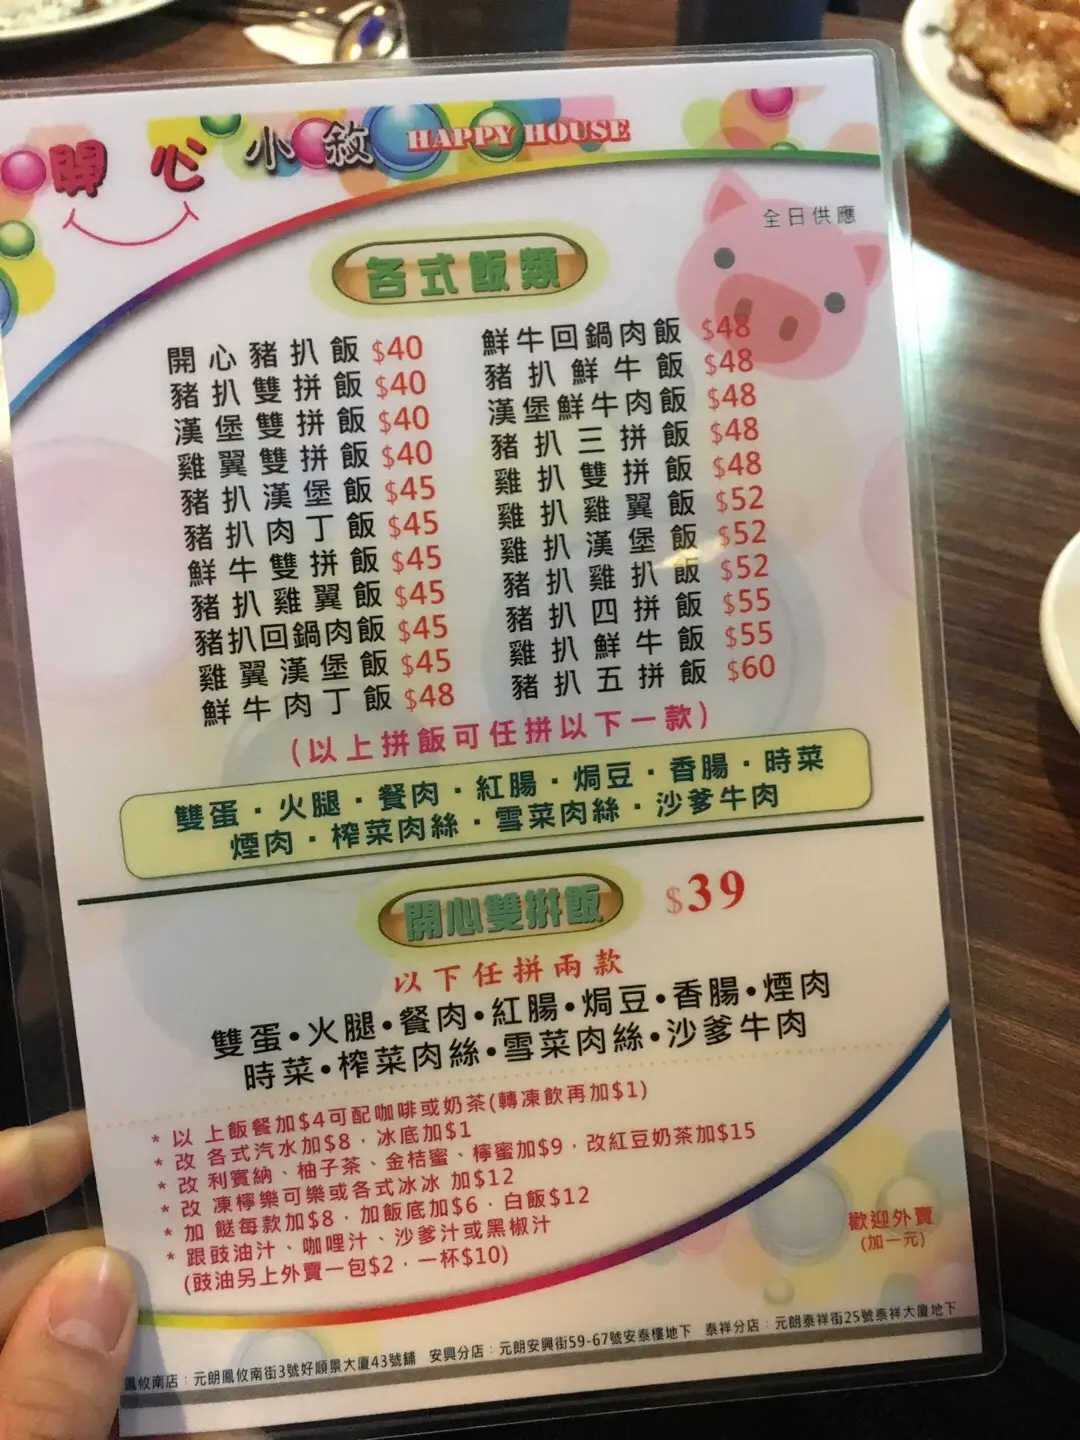 開心小敘 HAPPY HOUSE
全日供應
各式飯類
開心豬扒飯 $40
豬扒雙拼飯 $40
漢堡雙拼飯 $40
雞翼雙拼飯 $40
豬扒漢堡飯 $45
豬扒肉丁飯 $45
鮮牛雙拼飯 $45
豬扒雞翼飯 $45
豬扒回鍋肉飯 $45
雞翼漢堡飯 $45
鮮牛肉丁飯 $48
鮮牛回鍋肉飯 $48
豬扒鮮牛飯 $48
漢堡鮮牛肉飯 $48
豬扒三拼飯 $48
雞扒雙拼飯 $48
雞扒雞翼飯 $52
雞扒漢堡飯 $52
豬扒雞扒飯 $52
豬扒四拼飯 $55
雞扒鮮牛飯 $55
豬扒五拼飯 $60
(以上拼飯可任拼以下一款)
雙蛋·火腿·餐肉·紅腸·焗豆·香腸·時菜
煙肉·榨菜肉絲·雪菜肉絲·沙爹牛肉
開心雙拼飯 $39
以下任拼兩款
雙蛋•火腿•餐肉•紅腸•焗豆•香腸•煙肉
時菜•榨菜肉絲•雪菜肉絲•沙爹牛肉
* 以 上飯餐加$4可配咖啡或奶茶(轉凍飲再加$1)
* 改 各式汽水加$8，冰底加$1
* 改 利賓納、柚子茶、金桔蜜、檸蜜加$9，改紅豆奶茶加$15
* 改 凍檸樂可樂或各式冰冰 加$12
* 加 餸每款加$8，加飯底加$6，白飯$12
* 跟豉油汁、咖哩汁、沙爹汁或黑椒汁
(豉油另上外賣一包$2，一杯$10)
歡迎外賣
(加一元)
鳳攸南店：元朗鳳攸南街3號好順景大廈43號舖 安興分店：元朗安興街59-67號安泰樓地下 泰祥分店：元朗泰祥街25號泰祥大廈地下